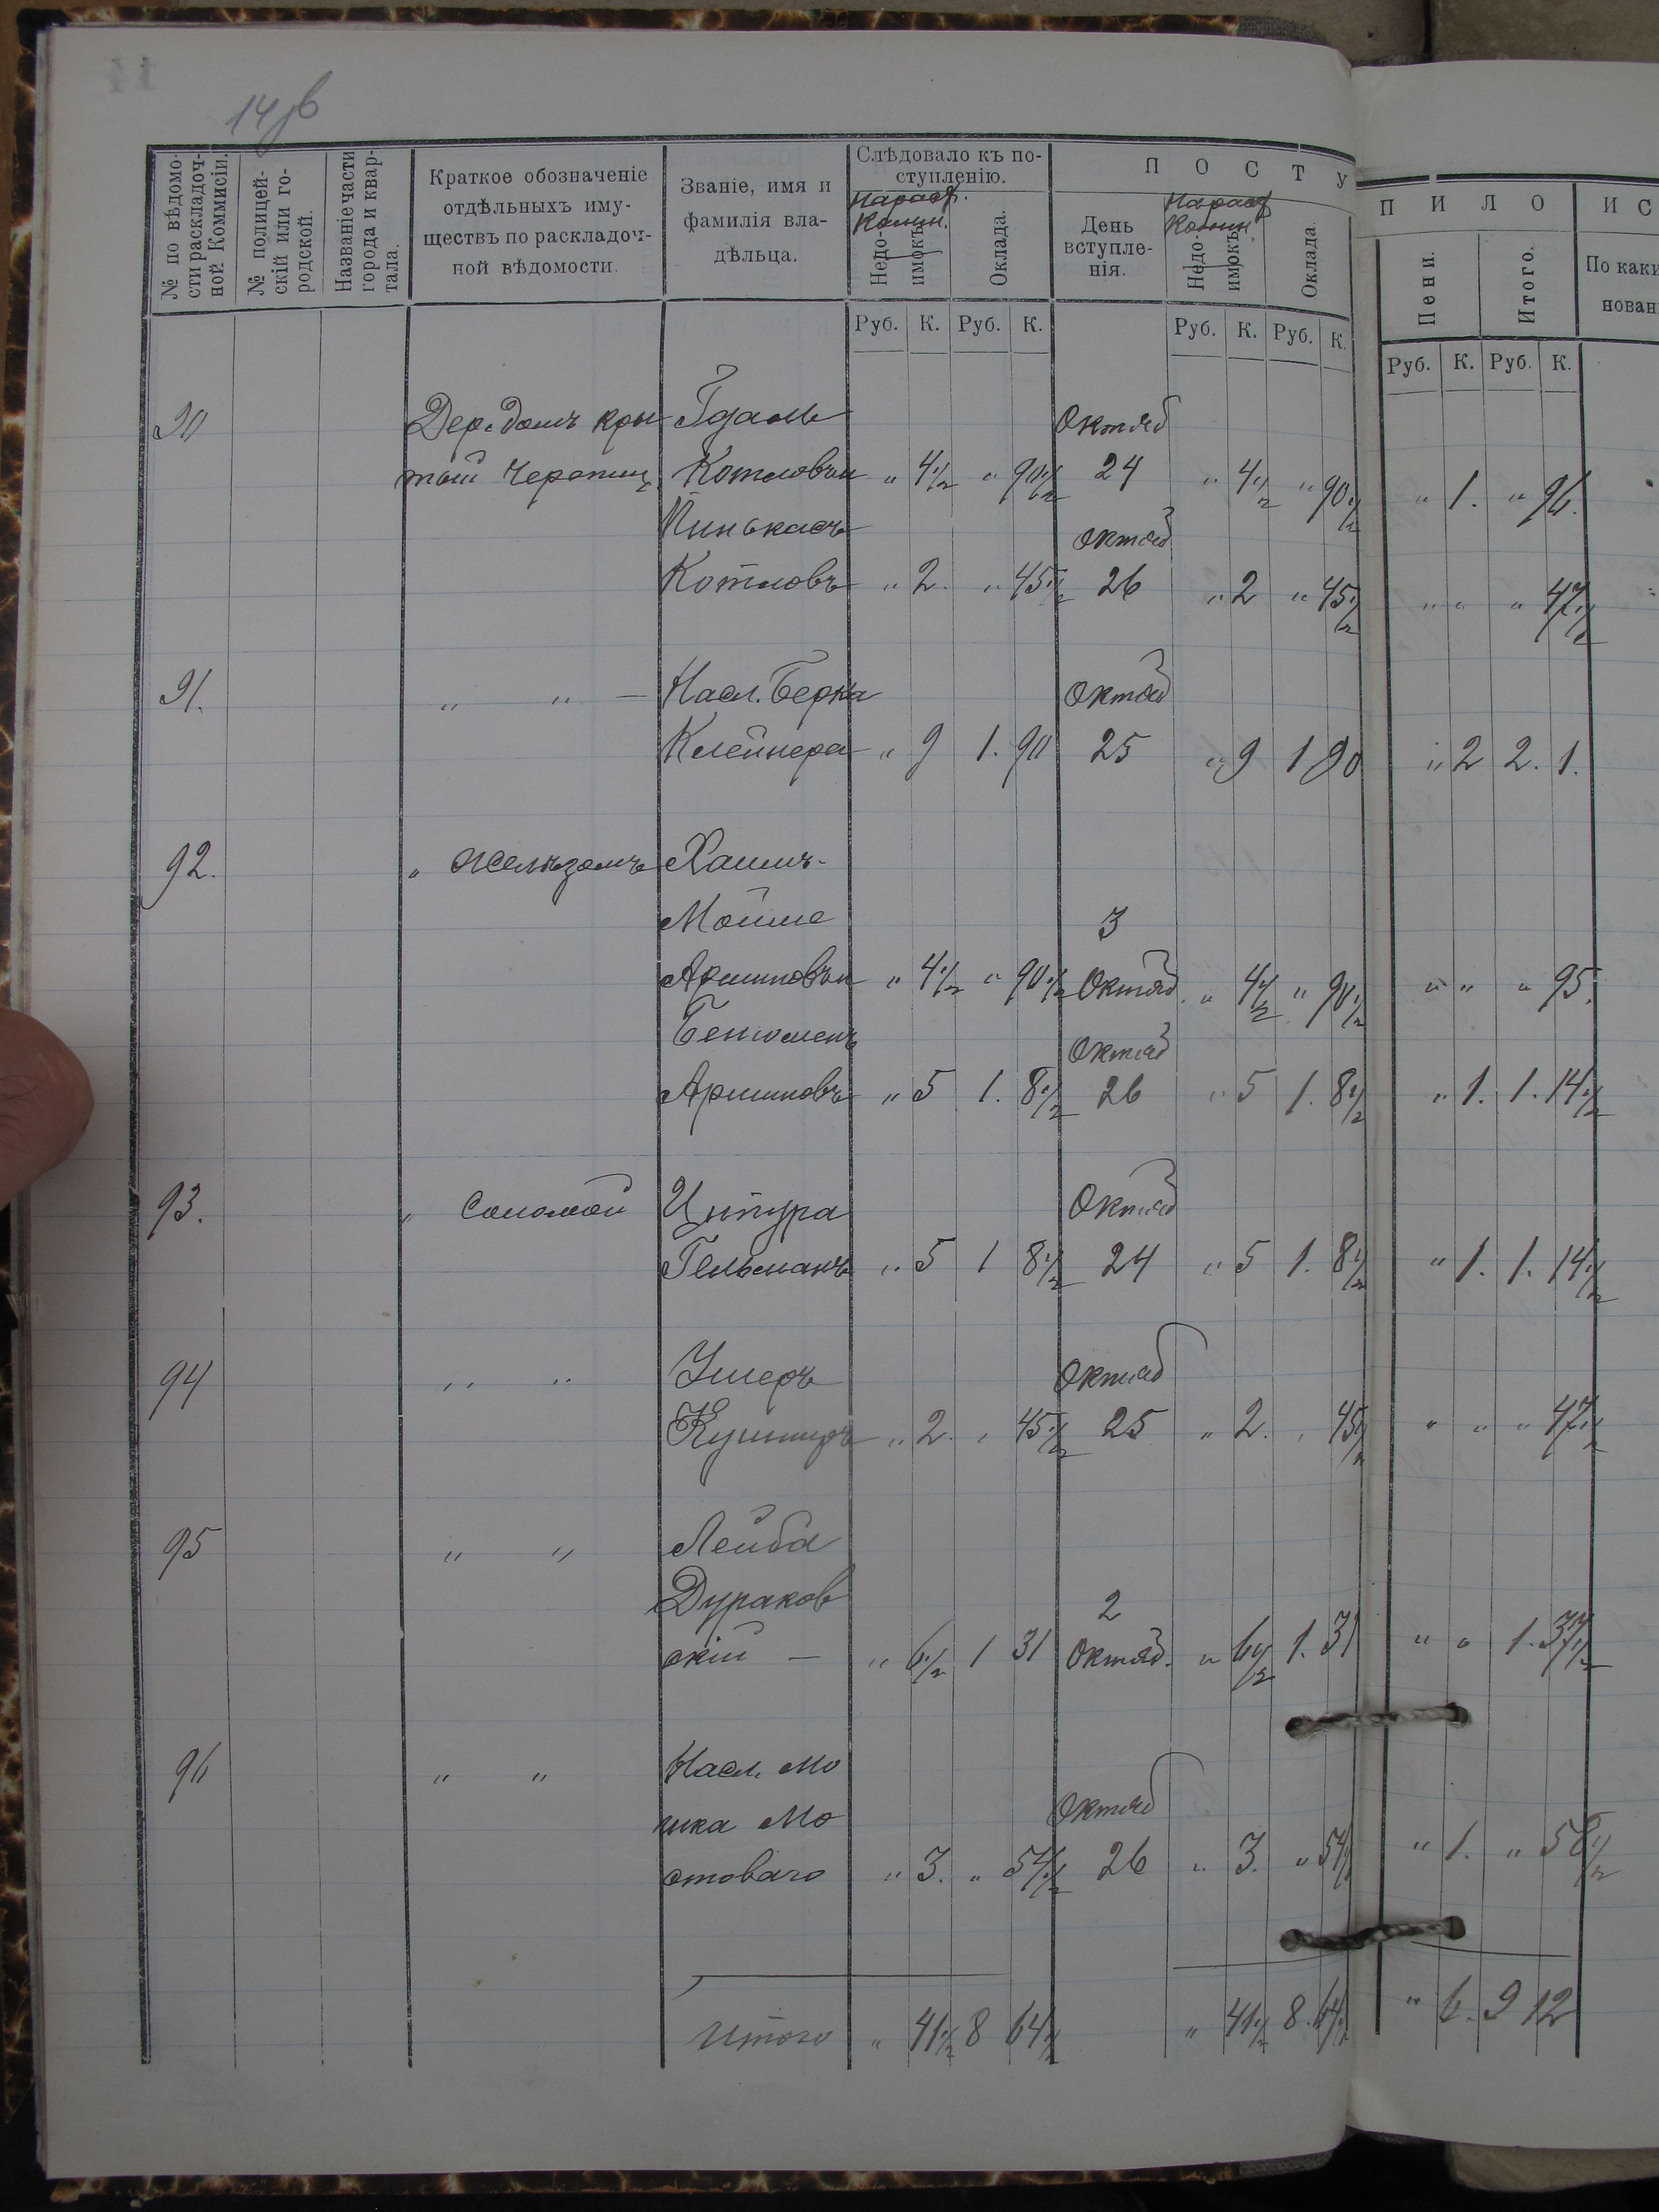 14 об
№ по вѣдомо-
сти раскладоч-
ной Коммисіи.
№ полицей-
скій или го-
родской.
Названіе части
города и квар-
тала.
Краткое обозначеніе
отдѣльныхъ иму-
ществъ по раскладоч-
ной вѣдомости.
Званіе, имя и
фамилія вла-
дѣльца.
Слѣдовало къ по-
ступленію.
Недо-
имокъ.
Оклада.
П О С Т У
День
вступле-
нія.
Недо-
имокъ.
Оклада.
П И Л О
Пени.
Итого.
И С
По каки
нован
Руб. К. Руб. К. Руб. К. Руб. К. Руб. К. Руб. К.
90 Дер. домъ кры Гдаль Октяб
тый черепиц. Котловъи " 4½ " 90½ 24 " 4½ " 90½ " 1. " 96.
Пинькасъ Октяб
Котловъ " 2. " 45½ 26 " 2 " 45½ " " " 47½
91. " " — Насл. Берка Октяб
Клейнера " 9 1. 90 25 " 9 1 90 " 2 2. 1.
92. " желѣзомъ Хаимъ-
Мойше 3
Аршиновъи " 4½ " 90½ Октяб. " 4½ " 90½ " " " 95.
Бенюменъ Октяб
Аршиновъ " 5 1. 8½ 26 " 5 1. 8½ " 1. 1. 14½
93. " соломой Октяб
Гельманъ " 5 1 8½ 24 " 5 1. 8½ " 1. 1. 14½
94 " " Ушеръ Октяб
Кушниръ " 2. " 45½ 25 " 2. " 45½ " " " 47½
95 " " Лейба
Дураков 2
скій — " 6½ 1 31 Октяб. " 6½ 1. 31 " " 1. 37½
96 " " Насл. Мо
шка Мо Октяб
стоваго " 3. " 54½ 26 " 3. " 54½ " 1. " 58½
Итого " 41½ 8 64½ " 41½ 8. 64½ " 6. 9 12